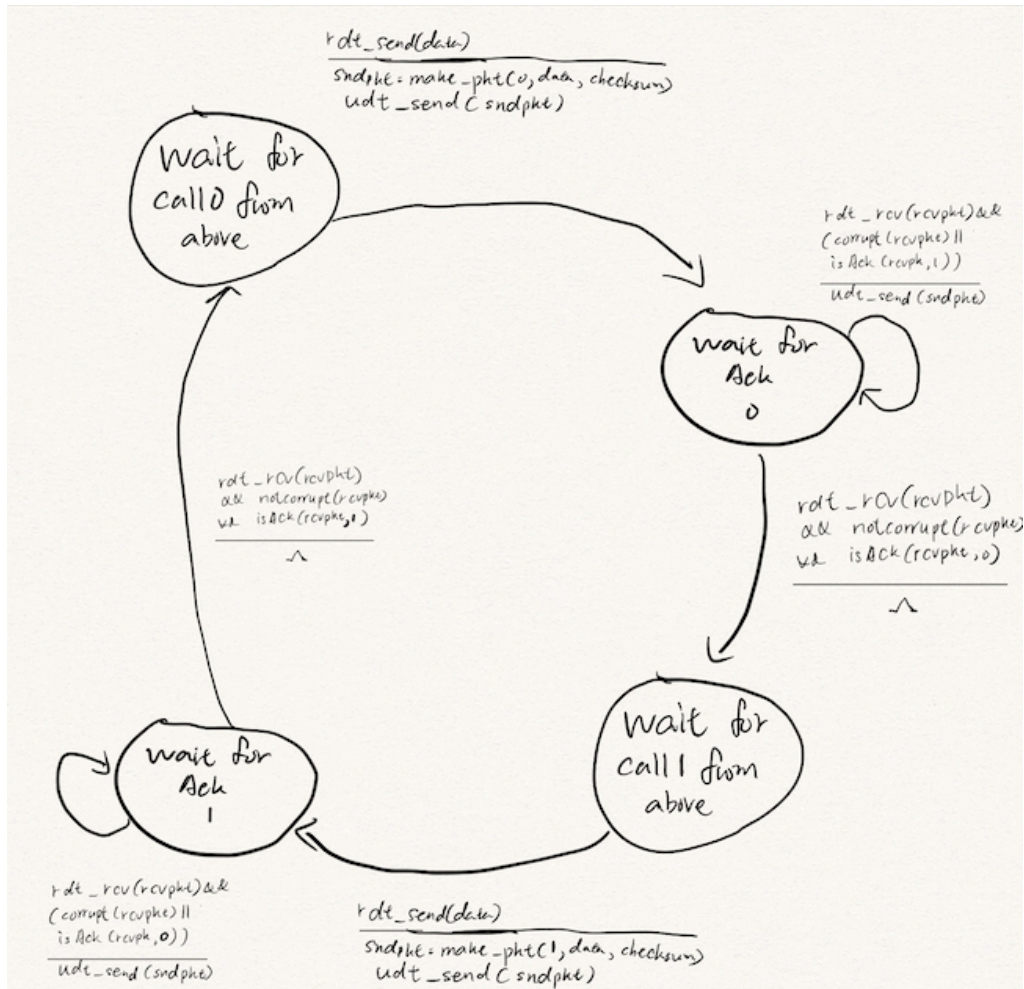 rdt_send(data)
sndpkt=make_pkt(0, data, checksum)
udt_send(sndpkt)
wait for
call0 from
above
rdt_rcv(rcvpkt)&&
(corrupt(rcvpkt)||
isAck(rcvpk,1))
udt_send(sndpkt)
wait for
Ack
0
rdt_rcv(rcvpkt)
&& notcorrupt(rcvpkt)
&& isAck(rcvpkt,1)
Λ
rdt_rcv(rcvpkt)
&& notcorrupt(rcvpkt)
&& isAck(rcvpkt,0)
Λ
wait for
call1 from
above
wait for
Ack
1
rdt_rcv(rcvpkt)&&
(corrupt(rcvpkt)||
isAck(rcvpk,0))
udt_send(sndpkt)
rdt_send(data)
sndpkt=make_pkt(1, data, checksum)
udt_send(sndpkt)